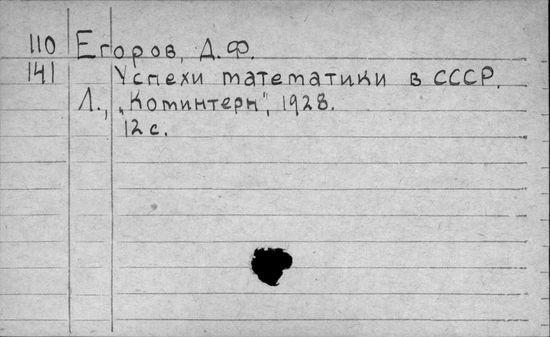 110 Егоров, Д.Ф.
141 Успехи математики в СССР.
Л., „Коминтерн", 1928.
12 с.